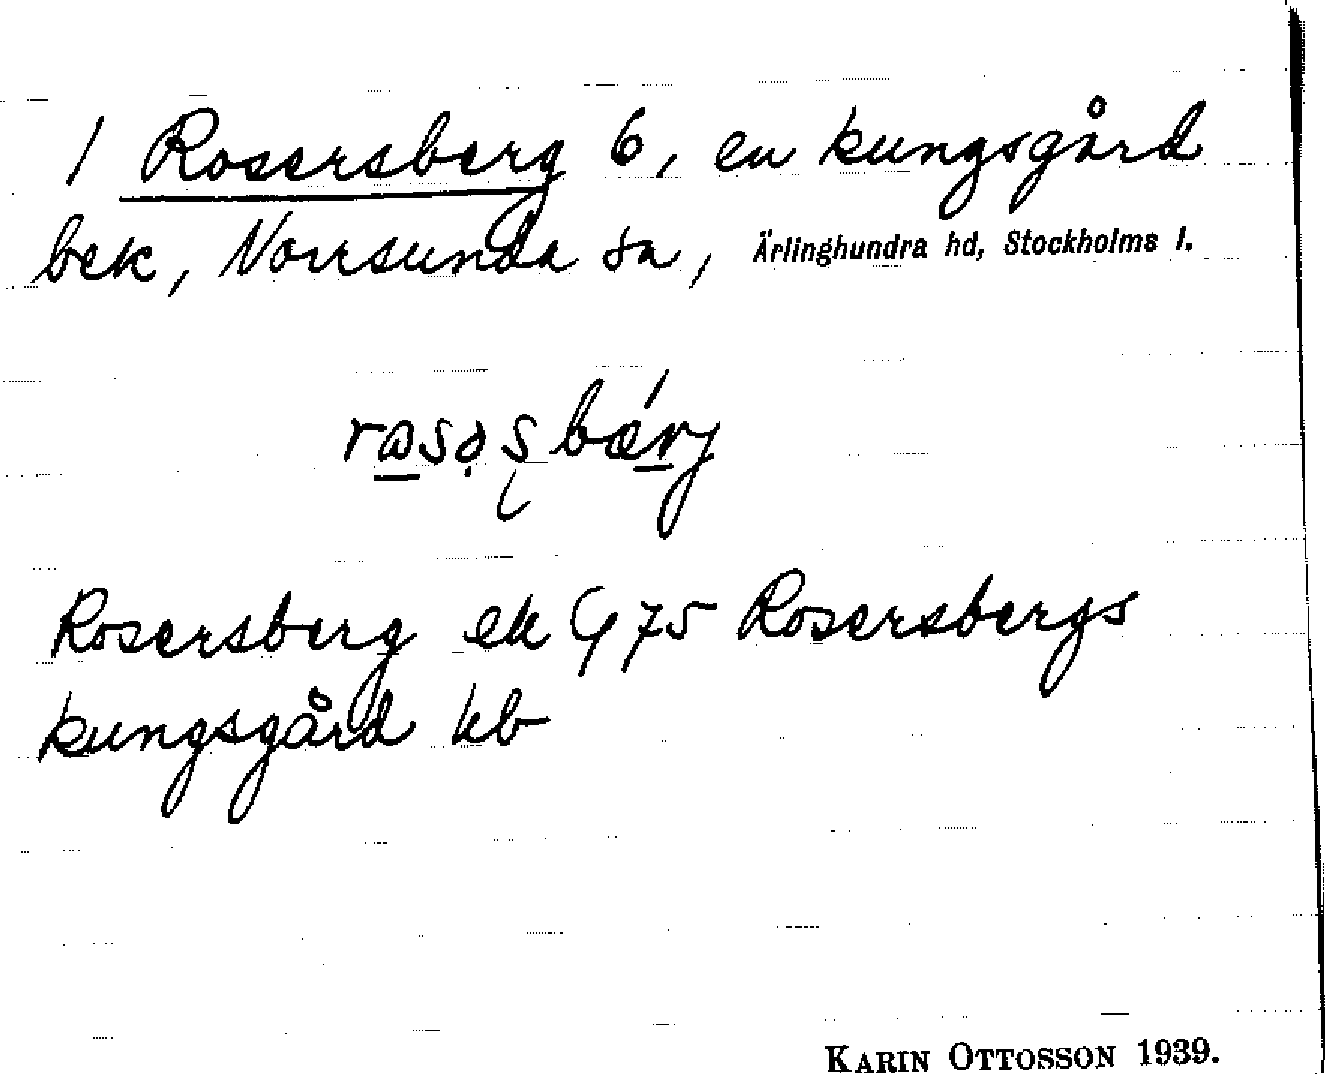 1 Rosersberg 6, en kungsgård
bek, Norrsunda sn, Ärlinghundra hd, Stockholms l.
Rosersberg ek G 75 Rosersbergs
kungsgård kb
KARIN OTTOSSON 1939.